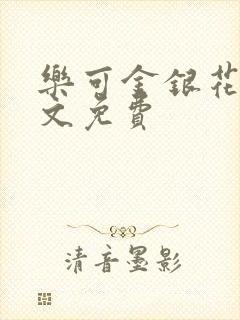 樂可金銀花
文免費
清音墨影